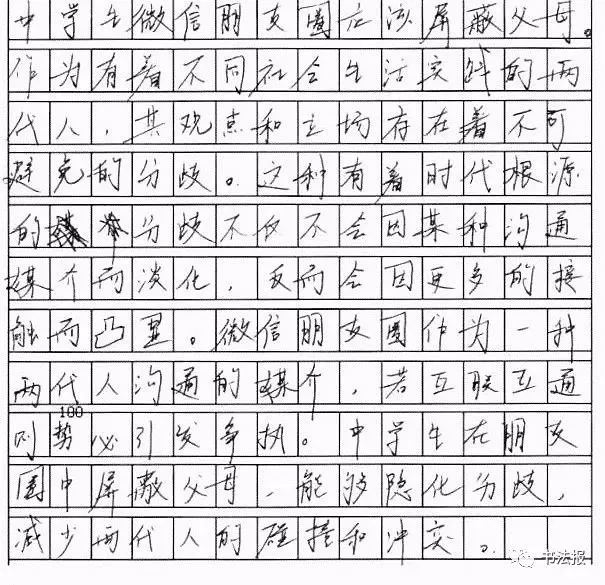 中学生微信朋友圈应该屏蔽父母。
作为有着不同社会生活实践的两
代人，其观点和立场存在着不可
避免的分歧。这种有着时代根源
的分歧不仅不会因某种沟通
媒介而淡化，反而会因更多的接
触而凸显。微信朋友圈作为一种
两代人沟通的媒介，若互联互通
100
则势必引发争执。中学生在朋友
圈中屏蔽父母，能够隐化分歧，
减少两代人的碰撞和冲突。
书法报